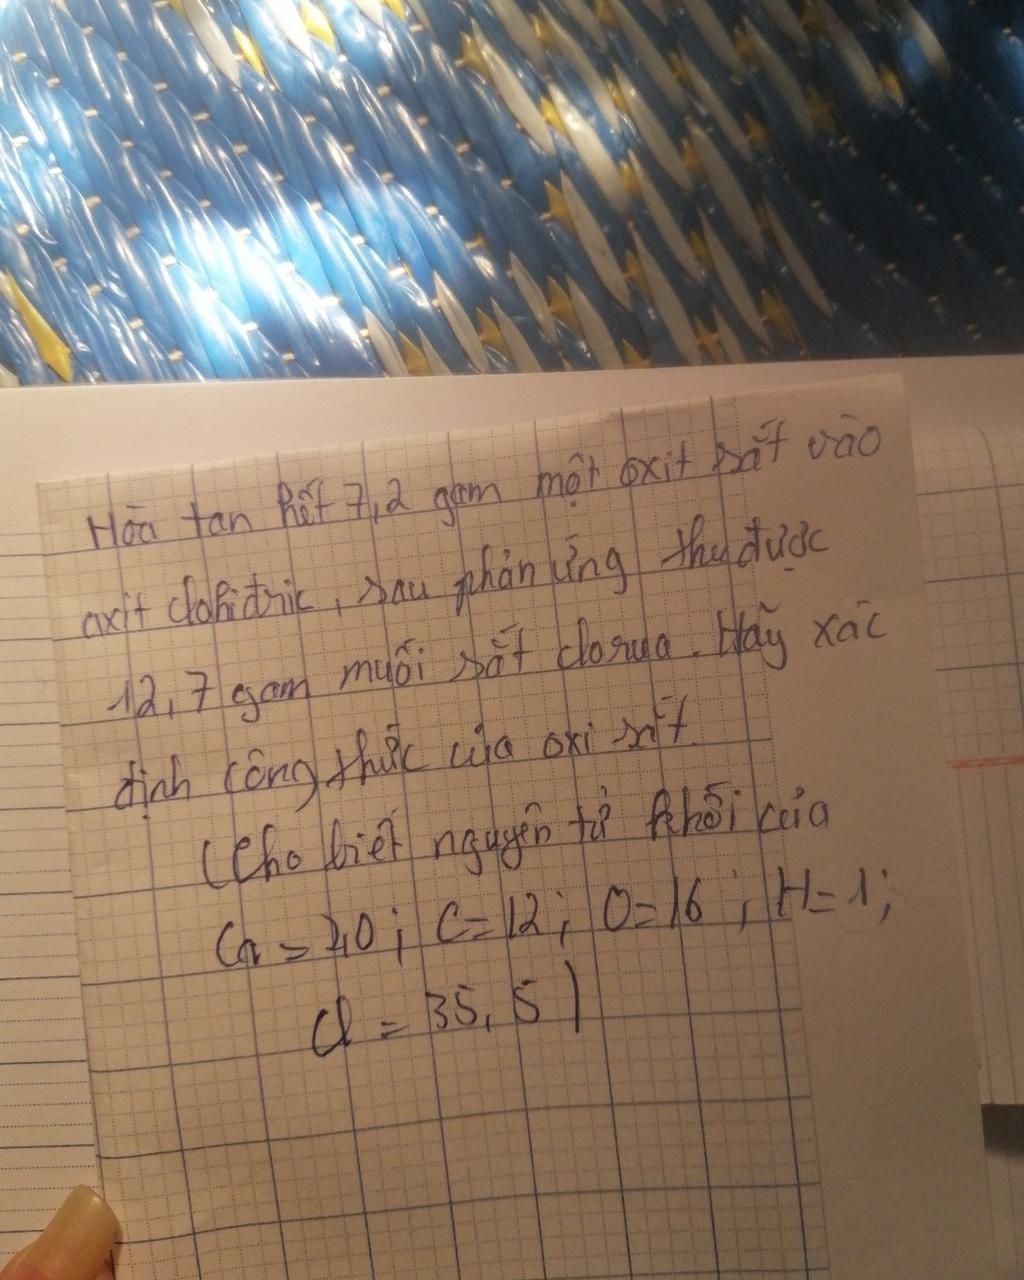 Hòa tan hết 7,2 gam một oxit sắt vào
axit clohiđric, sau phản ứng thu được
12,7 gam muối sắt clorua. Hãy xác
định công thức của oxi sắt.
(Cho biết nguyên tử khối của
Ca = 40; C=12; O=16; H=1;
Cl = 35,5)